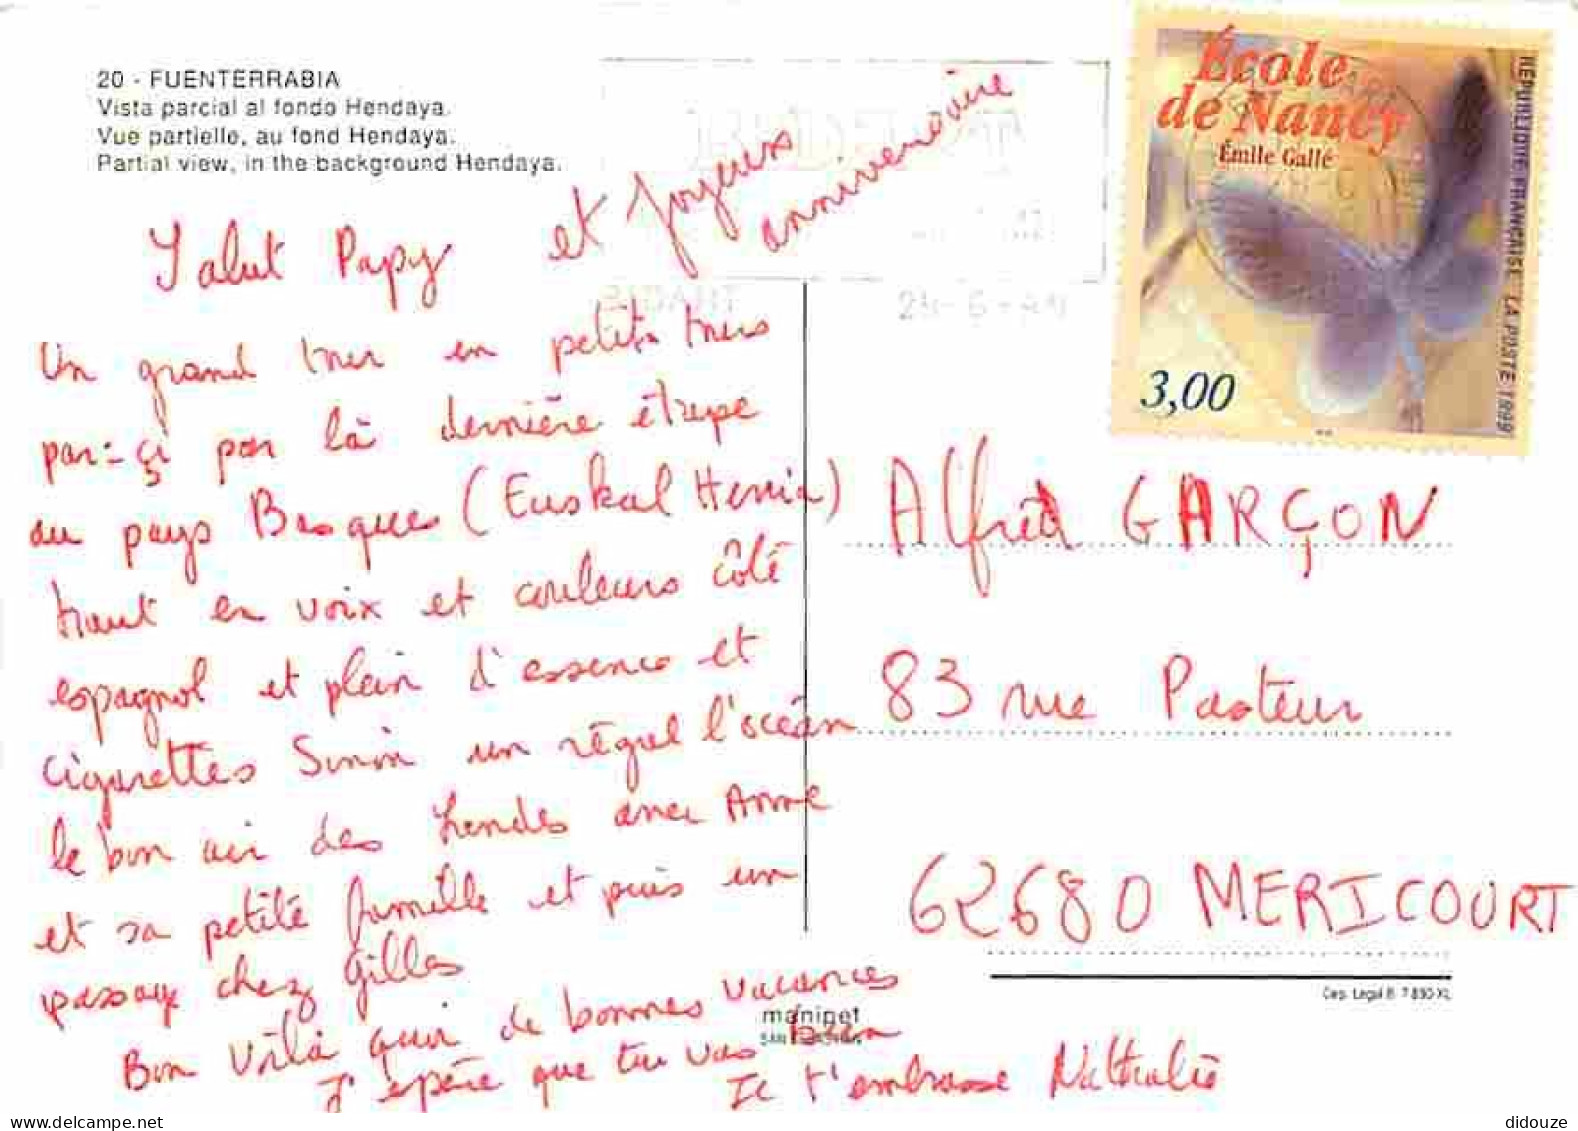 20 - FUENTERRABIA
Vista parcial al fondo Hendaya.
Vue partielle, au fond Hendaya.
Partial view, in the background Hendaya.
École
de Nancy
Émile Gallé
RÉPUBLIQUE FRANÇAISE LA POSTE 1999
3,00
BIDART
Salut Papy et joyeux
anniversaire
Un grand tour en petits tours
par-çi par là dernière étape
au pays Basques (Euskal Herria)
haut en voix et couleurs côté
espagnol et plein d'essence et
cigarettes Sinon un régal l'océan
le bon air des Landes avec Anne
et sa petite famille et puis un
passage chez Gilles
Bon voilà quoi de bonnes vacances
J'espère que tu vas bien
Je t'embrasse Nathalie
Alfred GARÇON
83 rue Pasteur
62680 MERICOURT
Dep. Legal B. 7.830-XL
manipel
didouze
delcampe.net